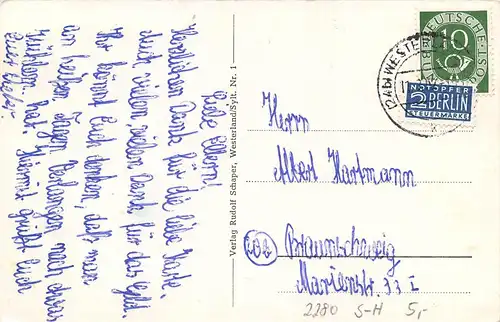 Liebe Eltern!
Herzlichen Dank für die liebe Karte.
Auch vielen vielen Dank für das Geld.
Ihr könnt Euch denken, daß man
an heißen Tagen Verlangen nach etwas
hat. Hiermit grüßt Euch
Euer
Verlag Rudolf Schaper, Westerland/Sylt. Nr. 1
(24b) WESTE
DEUTSCHE
10
POST
NOTOPFER
2 BERLIN
STEUERMARKE
Herrn
Albert Hartmann
(20b) Braunschweig
Marienstr. 33 I
2280 S-H 5,-